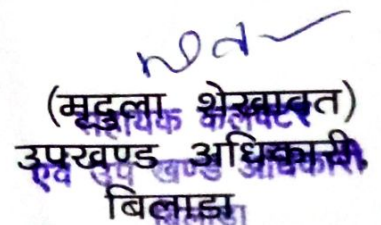 (मृदुला शेखावत)
सहायक कलेक्टर
उपखण्ड अधिकारी,
एवं उप खण्ड अधिकारी
बिलाडा
बिलाडा